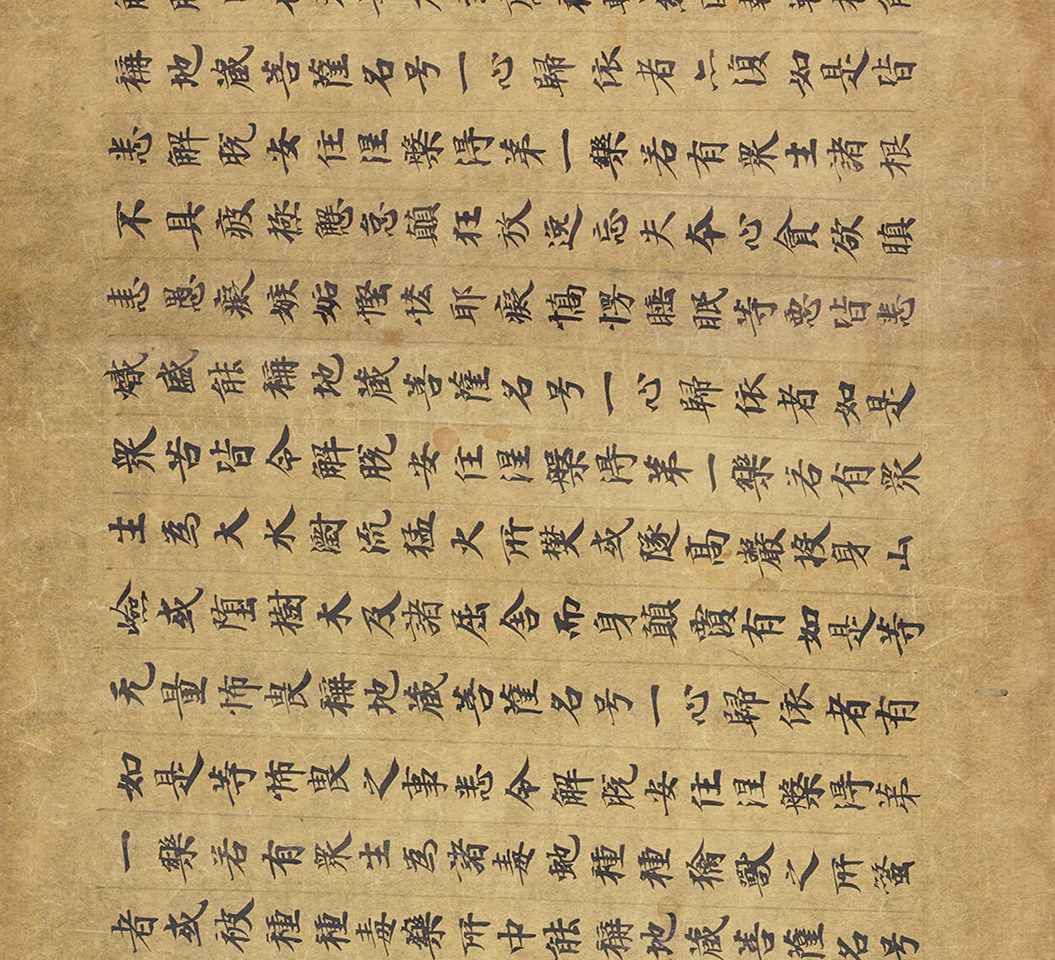 稱地藏菩薩名号一心歸依者亦復如是皆
悉解脫安住涅槃得第一樂若有眾生諸根
不具疲極懈怠顛狂放逸忘失本心貪欲瞋
恚愚癡嫉妬慳悋耶癡憍愕睡眠等惡皆悉
熾盛能稱地藏菩薩名号一心歸依者如是
眾苦皆令解脫安住涅槃得第一樂若有眾
生為大水澍流猛火所焚或隧高巖投身山
嶮或墮樹木及諸屈舍而身顛霞有如是等
无量怖畏稱地藏菩薩名号一心歸依者有
如是等怖畏之事悉令解脫安住涅槃得第
一樂若有眾生為諸毒虵種種獈獸之所螫
者或被種種毒藥所中能稱地藏菩薩名号